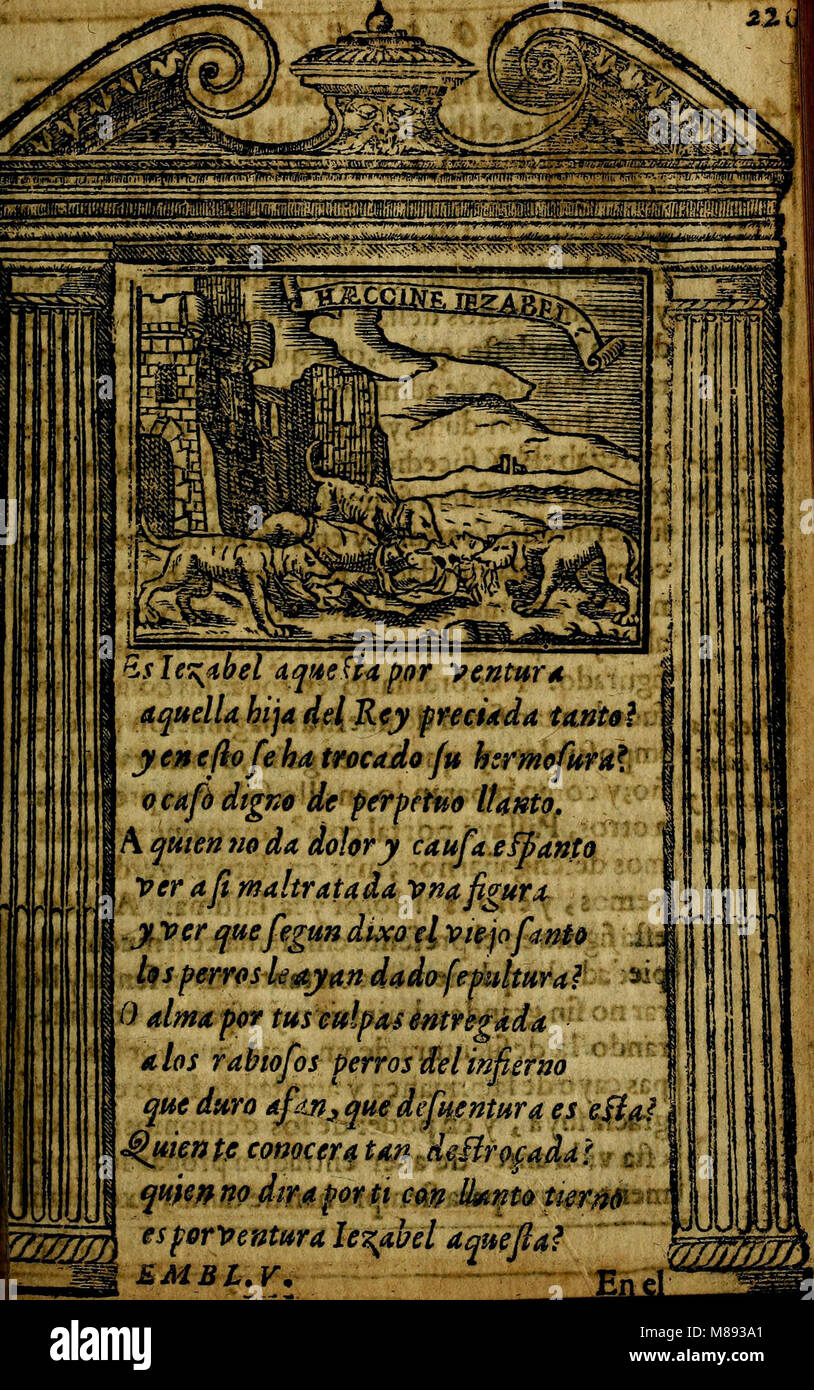 220
HÆCCINE IEZABEL
Es Iezabel aquesta por ventura
aquella hija del Rey preciada tanto?
y en esto se ha trocado su hermosura?
o caso digno de perpetuo llanto.
A quien no da dolor y causa espanto
ver asi maltratada vna figura
y ver que segun dixo el viejo santo
los perros le ayan dado sepultura?
O alma por tus culpas entregada
a los rabiosos perros del infierno
que duro afan, que desuentura es esta?
Quien te conocera tan destroçada?
quien no dira por ti con llanto tierno
es por ventura Iezabel aquesta?
EMBL. V.
En el
alamy
Image ID: M893A1
www.alamy.com